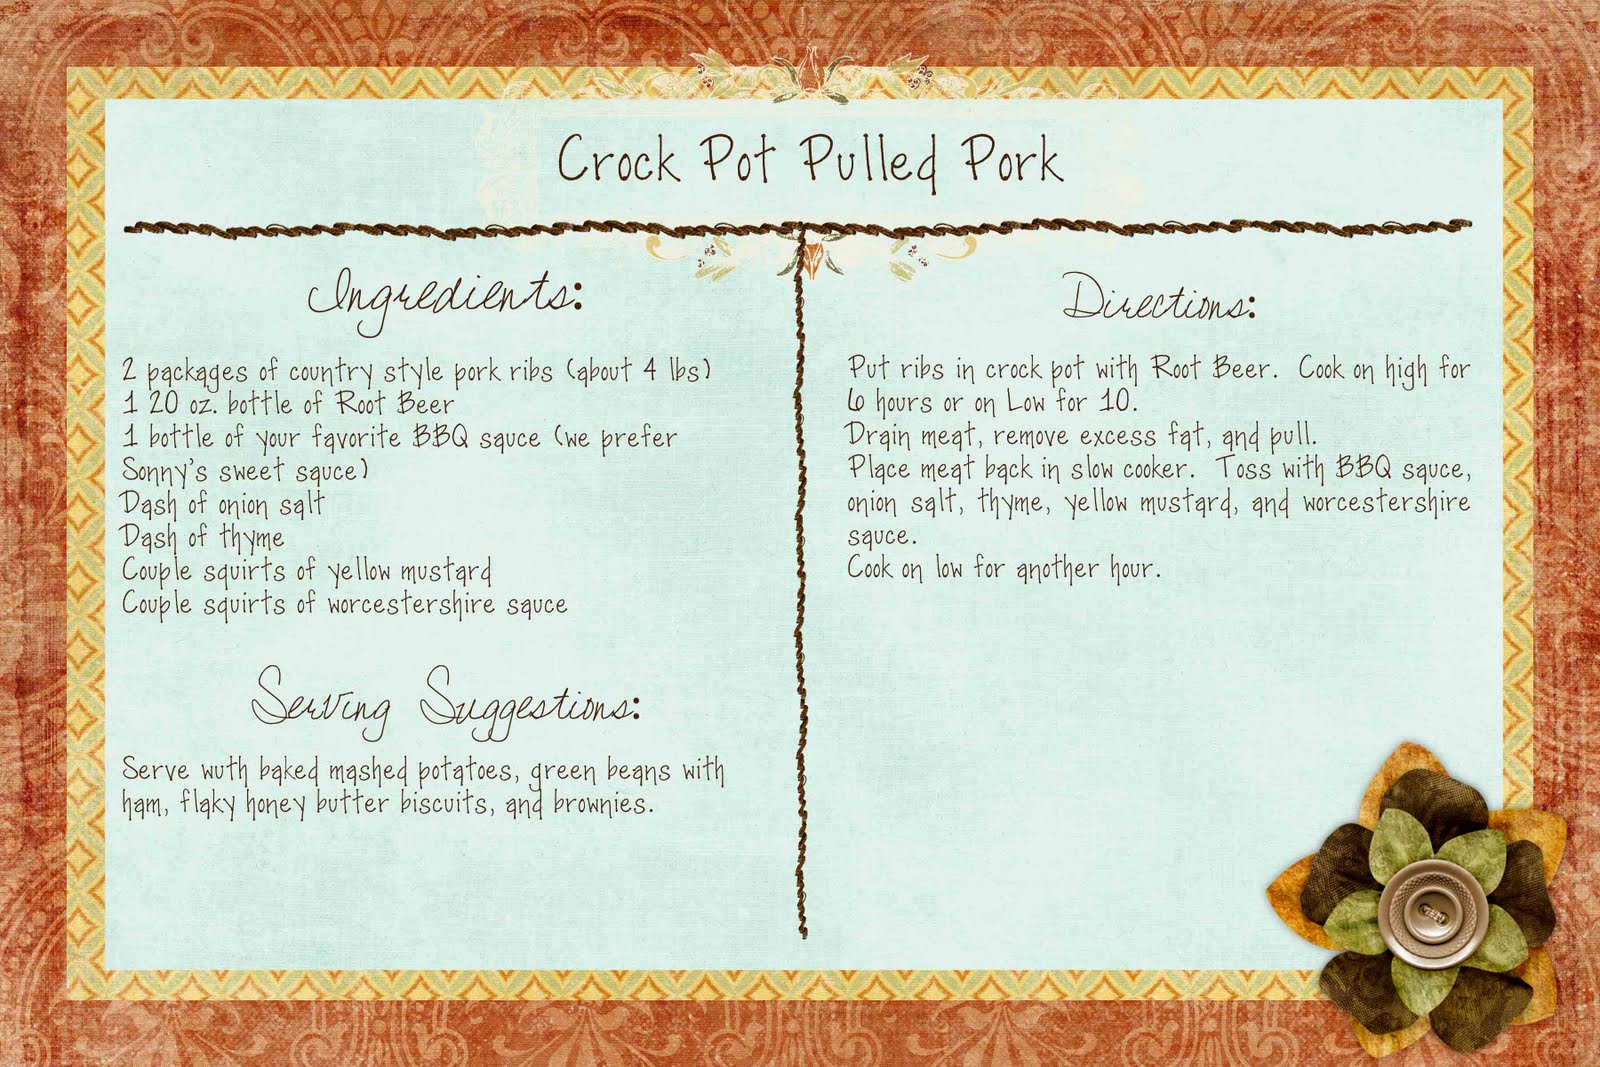 Crock Pot Pulled Pork
Ingredients:
2 packages of country style pork ribs (about 4 lbs)
1 20 oz. bottle of Root Beer
1 bottle of your favorite BBQ sauce (we prefer
Sonny's sweet sauce)
Dash of onion salt
Dash of thyme
Couple squirts of yellow mustard
Couple squirts of worcestershire sauce
Serving Suggestions:
Serve wuth baked mashed potatoes, green beans with
ham, flaky honey butter biscuits, and brownies.
Directions:
Put ribs in crock pot with Root Beer. Cook on high for
6 hours or on Low for 10.
Drain meat, remove excess fat, and pull.
Place meat back in slow cooker. Toss with BBQ sauce,
onion salt, thyme, yellow mustard, and worcestershire
sauce.
Cook on low for another hour.